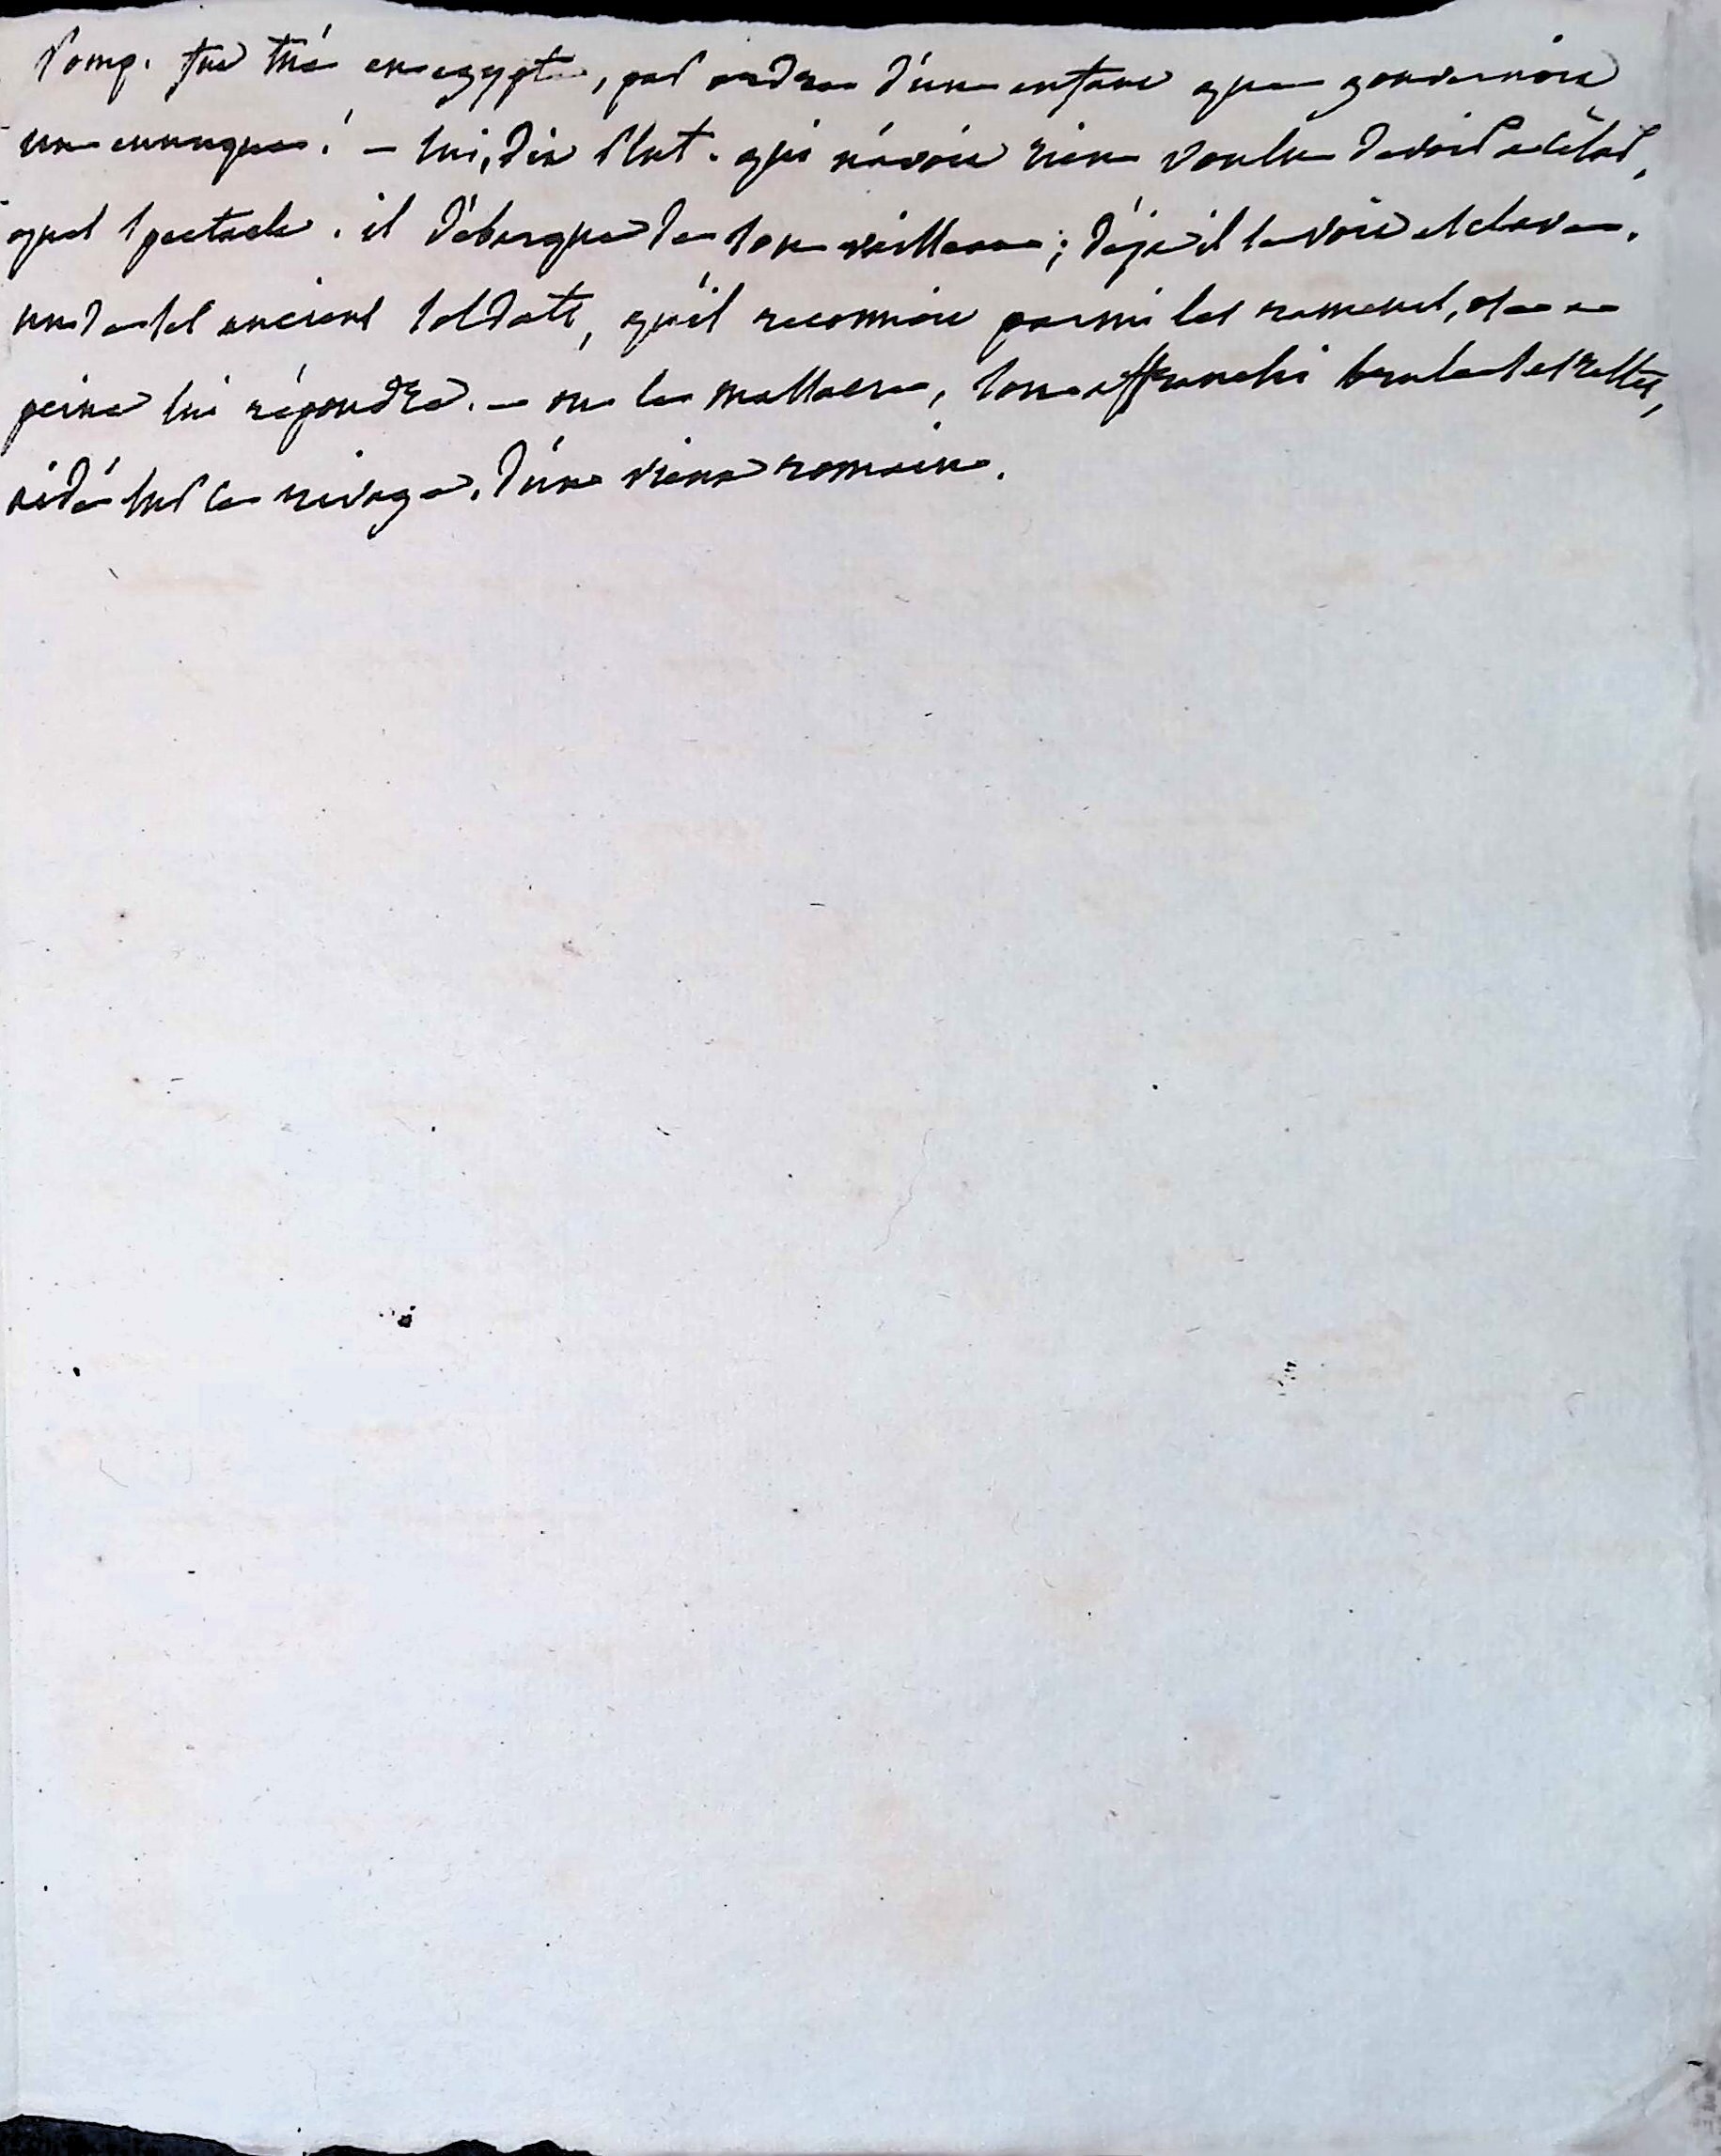 Pomp. fut tué en egypte, par ordre d'un enfant que gouvernoit
un eunuque ! – lui, dit Plut. qui n'avoit rien voulu devoir a César,
quel spectacle. il débarque de son vaisseau ; déja il se voit esclave.
un de ses anciens soldats, qu'il reconnoit parmi les rameurs, ose a
peine lui répondre. – on le massacre, son affranchi brule ses restes,
aidé sur le rivage, d'un vieux romain.